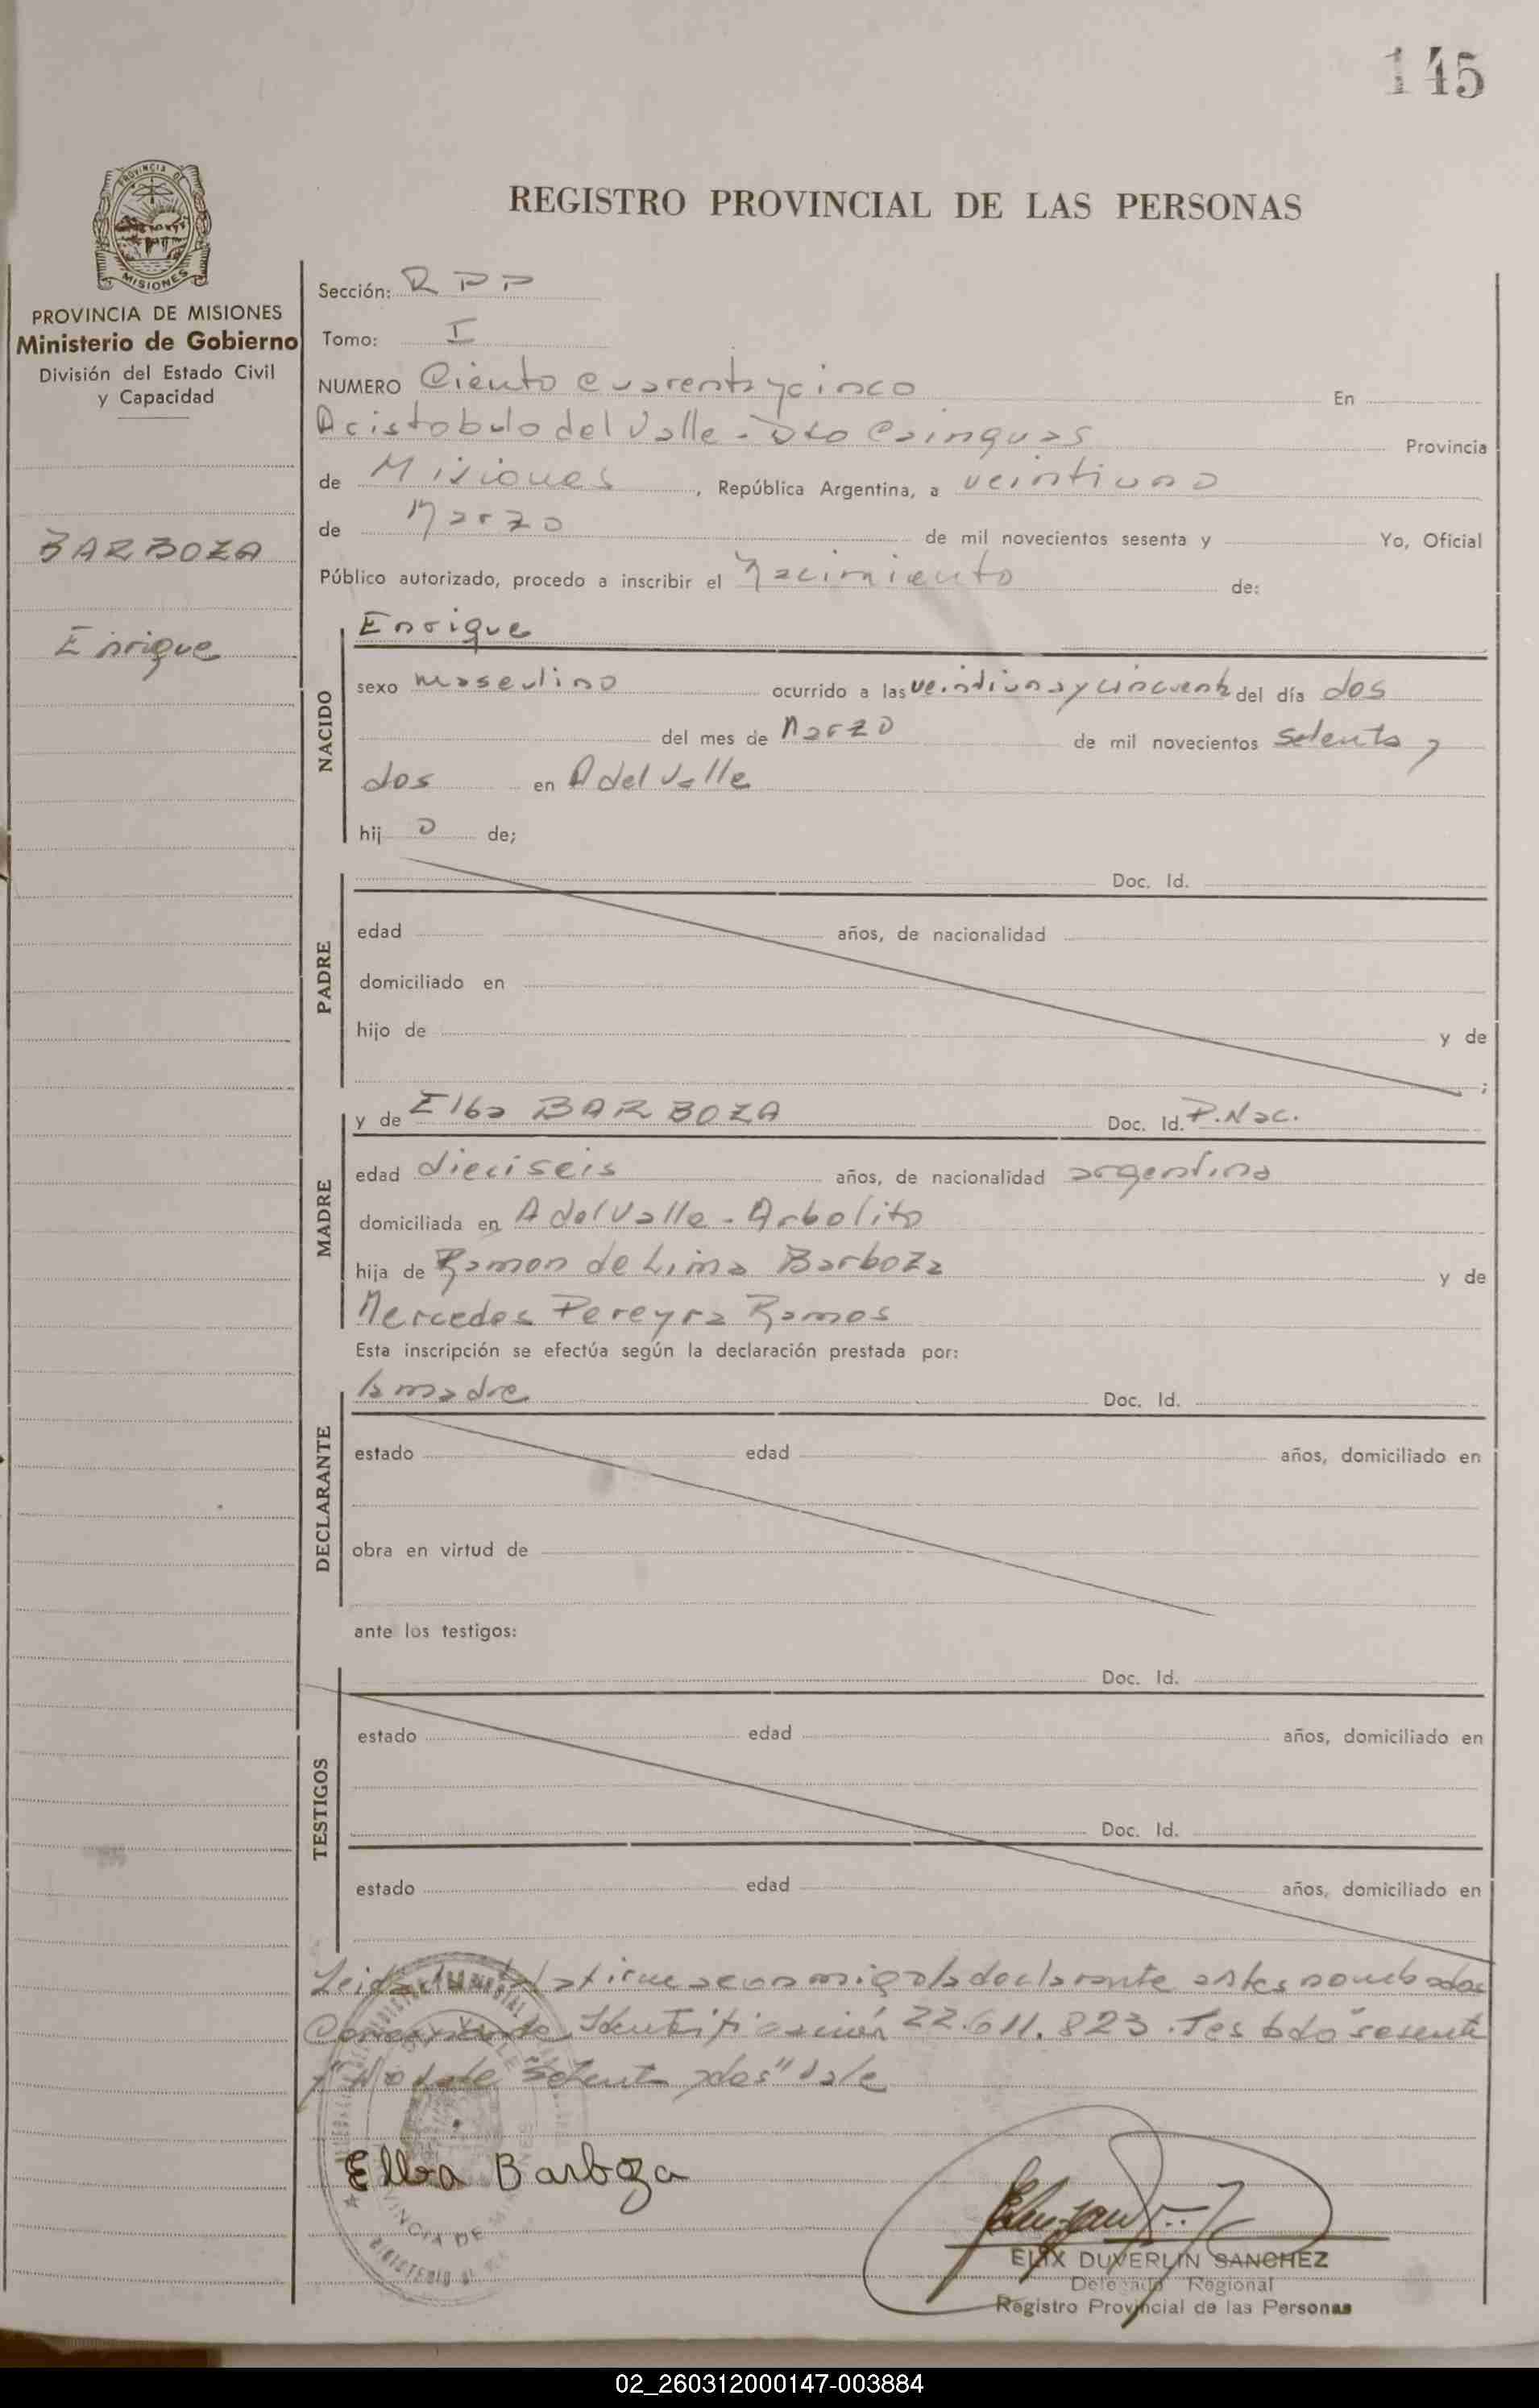 145
PROVINCIA DE
MISIONES
REGISTRO PROVINCIAL DE LAS PERSONAS
PROVINCIA DE MISIONES
Ministerio de Gobierno
División del Estado Civil
y Capacidad
BARBOZA
Enrique
Sección: R P P
Tomo: I
NUMERO Ciento cuarenta y cinco En
Aristobulo del Valle - Dto Cainguas Provincia
de Misiones, República Argentina, a veintiuno
de Marzo de mil novecientos sesenta y Yo, Oficial
Público autorizado, procedo a inscribir el Nacimiento de:
NACIDO
Enrique
sexo masculino ocurrido a las veintiuna y cincuenta del día dos
del mes de Marzo de mil novecientos setenta y
dos en A del Valle
hij o de;
PADRE
Doc. Id.
edad años, de nacionalidad
domiciliado en
hijo de y de
;
MADRE
y de Elba BARBOZA Doc. Id. P. Nac.
edad dieciseis años, de nacionalidad argentina
domiciliada en A del Valle - Arbolito
hija de Ramon de Lima Barboza y de
Mercedes Pereyra Ramos
Esta inscripción se efectúa según la declaración prestada por:
DECLARANTE
la madre Doc. Id.
estado edad años, domiciliado en
obra en virtud de
ante los testigos:
TESTIGOS
Doc. Id.
estado edad años, domiciliado en
Doc. Id.
estado edad años, domiciliado en
Leida el acta firma conmigo la declarante antes nombrada
Identificación 22.611.823. Testado "sesenta
y" No vale "setenta y dos" vale
Elba Barboza
ELIX DUVERLIN SANCHEZ
Delegado Regional
Registro Provincial de las Personas
02_260312000147-003884